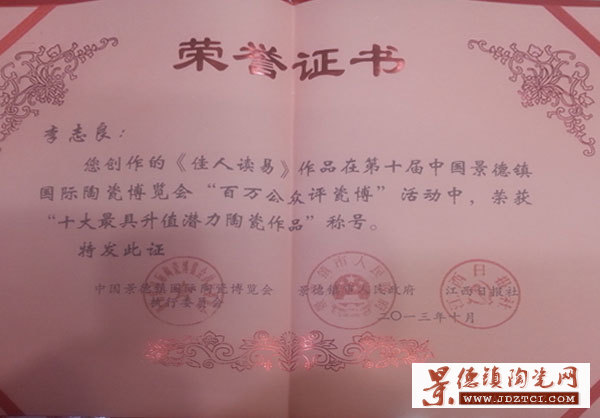 荣誉证书
李志良:
您创作的《佳人读易》作品在第十届中国景德镇
国际陶瓷博览会“百万公众评瓷博”活动中,荣获
“十大最具升值潜力陶瓷作品”称号。
特发此证
中国景德镇国际陶瓷博览会 景德镇市人民政府 江西日报社
执行委员会
二〇一三年十月
景德镇陶瓷网
WWW.JDZTCI.COM